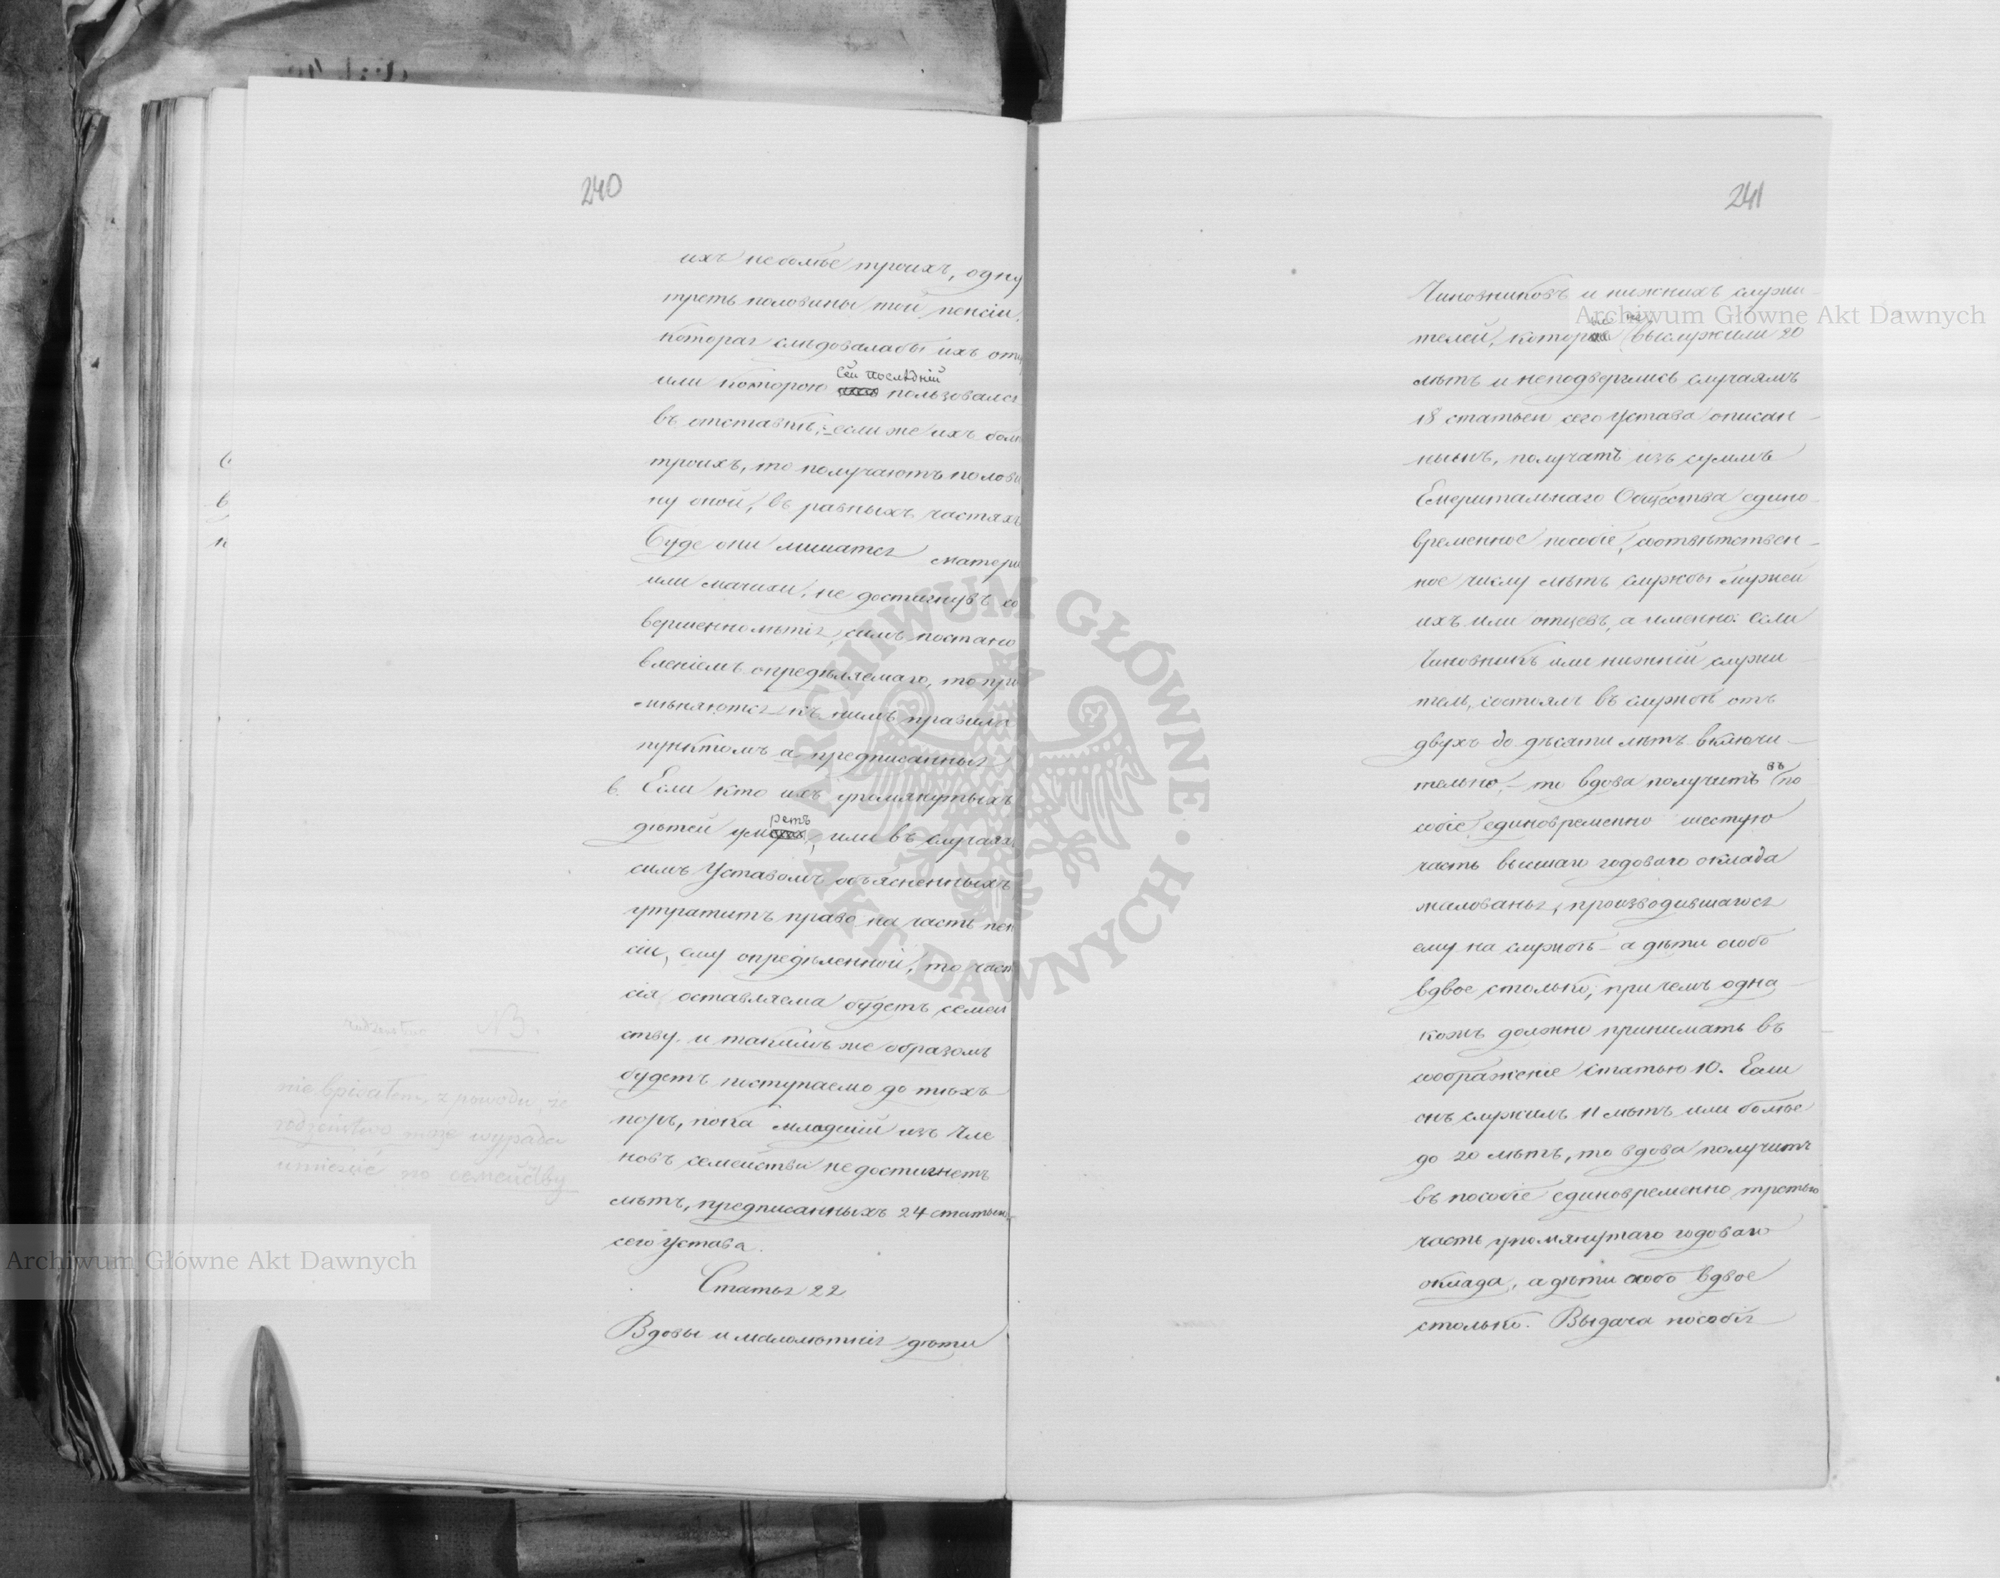 240
ихъ не болѣе троихъ, одну
треть половины той пенсіи,
которая слѣдовалабы ихъ отцу
или которою сей послѣдній пользовался
въ отставкѣ; – если же ихъ болѣ
троихъ, то получаютъ полови
ну оной, въ равныхъ частяхъ
Буде они лишатся матери
или мачихи, не достигнувъ со
вершеннолѣтія симъ постано
вленіемъ опредѣляемаго, то при
мѣняются къ нимъ правила
пунктомъ а предписанныя
в. Если кто изъ упомянутыхъ
дѣтей умретъ, или въ случаяхъ
симъ Уставомъ объясненныхъ
утратитъ право на часть пен
сіи, ему опредѣленной, то часть
сія оставляема будетъ семей
ству. и такимъ же образомъ
будетъ поступаемо до тѣхъ
поръ, пока младшій изъ Чле
новъ семейства не достигнетъ
лѣтъ, предписанныхъ 24 статьею
сего Устава.
Статья 22
Вдовы и малолѣтнія дѣти
rodzeństwo NB.
nie wpisałem, z powodu, że
rodzeństwo może wypada
umieścić po семейству
241
Чиновниковъ и нижнихъ служи–
телей, которые не выслужили 20
лѣтъ и неподверглись случаямъ
18 статьею сего Устава описан–
нымъ, получатъ изъ суммъ
Емеритальнаго Общества едино–
временное пособіе, соотвѣтствен–
ное числу лѣтъ службы мужей
ихъ или отцевъ, а именно: Если
Чиновникъ или нижній служи–
тель, состоялъ въ службѣ отъ
двухъ до десяти лѣтъ включи–
тельно, – то вдова получитъ въ по
собіе единовременно шестую
часть высшаго годоваго оклада
жалованья, производившагося
ему на службѣ – а дѣти особо
вдвое столько; при чемъ одна–
кожъ должно принимать въ
соображеніе статью 10. Если
онъ служилъ 11 лѣтъ или болѣе
до 20 лѣтъ, то вдова получитъ
въ пособіе единовременно третью
часть упомянутаго годоваго
оклада, а дѣти особо вдвое
столько. Выдача пособія
Archiwum Główne Akt Dawnych
Archiwum Główne Akt Dawnych
ARCHIWUM GŁÓWNE • AKT DAWNYCH •